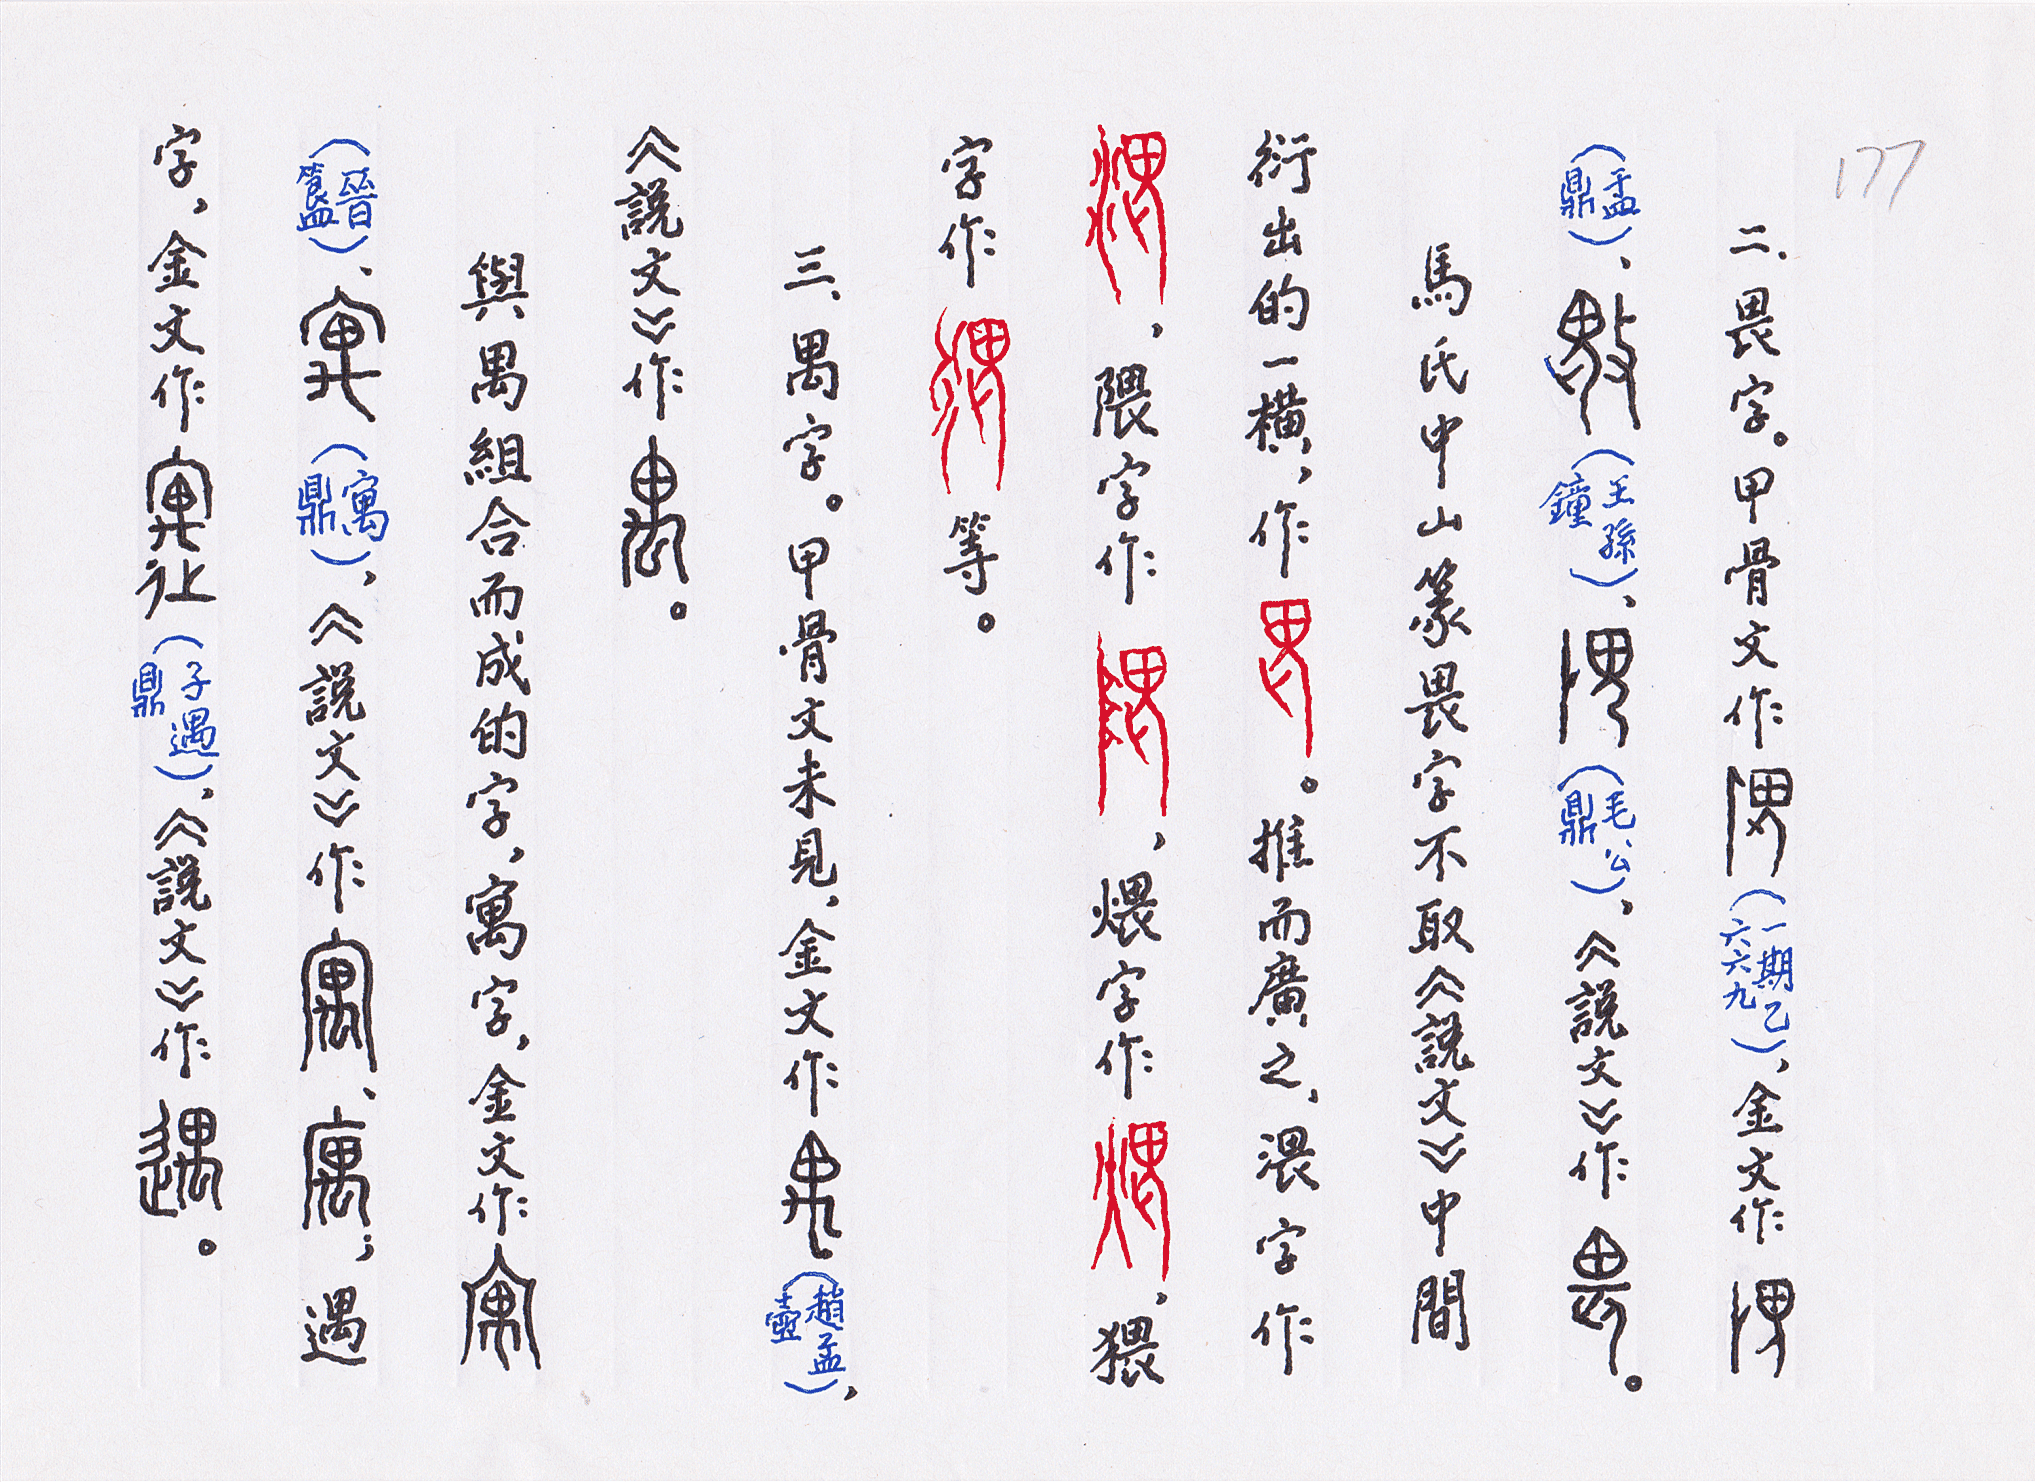 177
二、畏字。甲骨文作畏(一期乙六六九)，金文作畏
(盂鼎)、畏(王孫鐘)、畏(毛公鼎)，《說文》作畏。
馬氏中山篆畏字不取《說文》中間
衍出的一橫，作畏。推而廣之，渨字作
渨，隈字作隈，煨字作煨，猥
字作猥等。
三、禺字。甲骨文未見，金文作禺(趙孟壺)，
《說文》作禺。
與禺組合而成的字，寓字，金文作寓
(晉簋)、寓(寓鼎)，《說文》作寓、庽；遇
字，金文作遇(子遇鼎)，《說文》作遇。